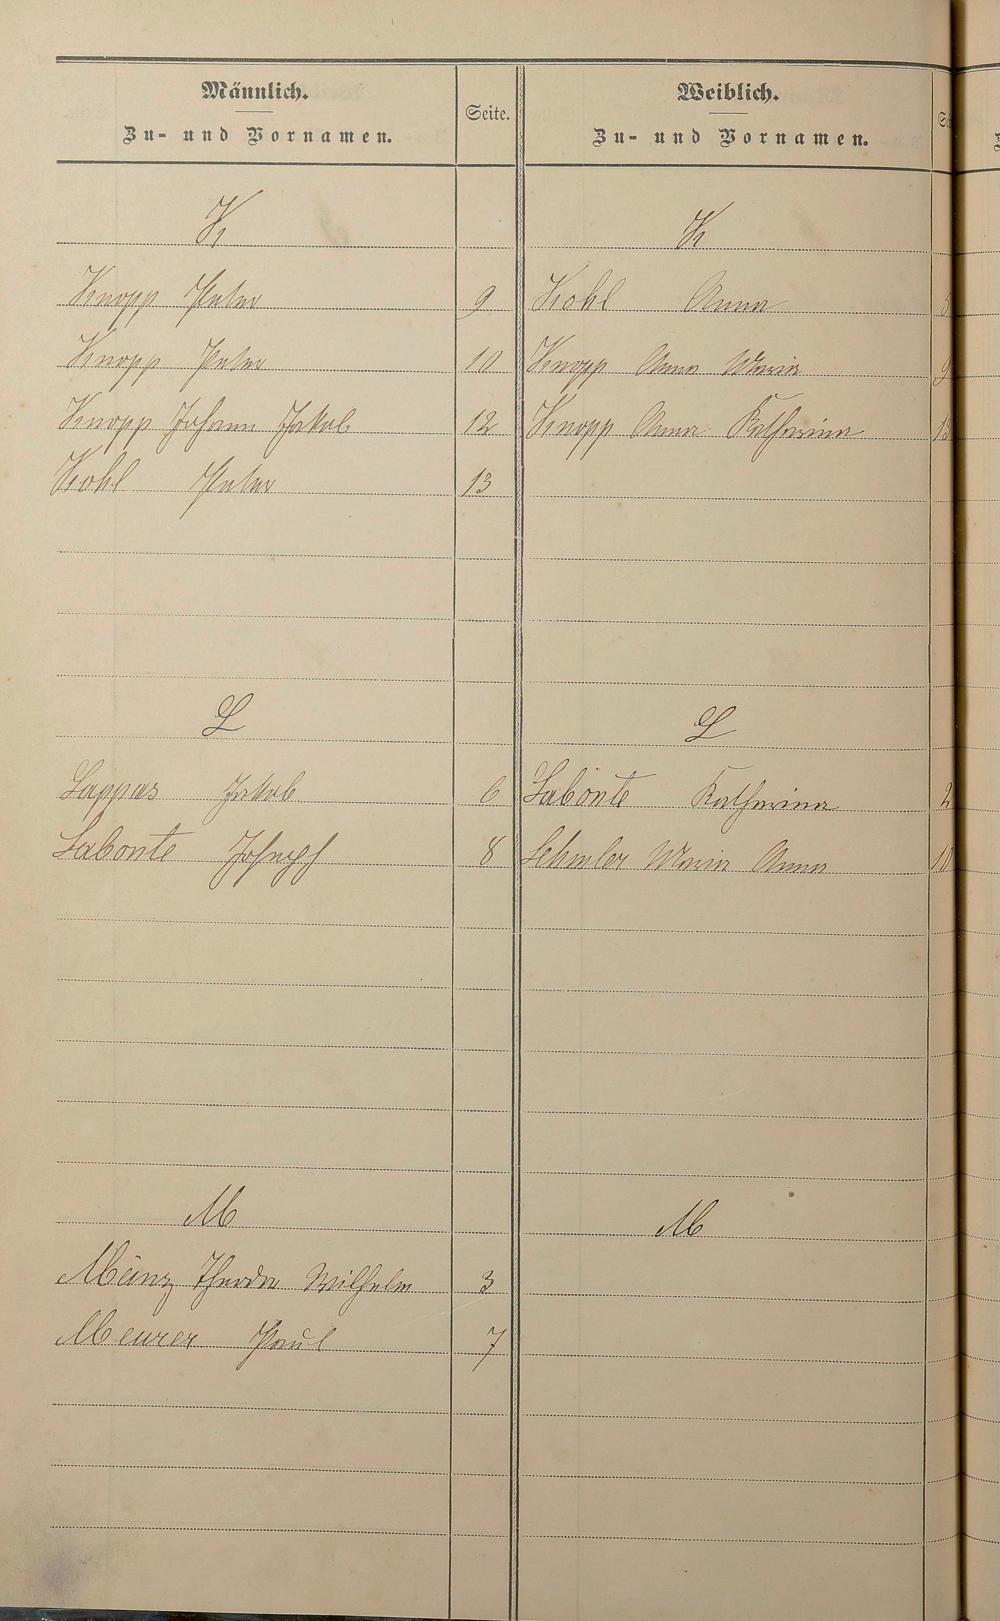 Männlich.
Zu- und Vornamen.
Seite.
K
Knopp Peter 9
Knopp Peter 10
Knopp Johann Jakob 12
Kohl Peter 13
L
Lappas Jakob 6
Labonte Joseph 8
M
Münz Theodor Wilhelm 3
Meurer Paul 7
Weiblich.
Zu- und Vornamen.
K
Kohl Anna
Knopp Anna Maria 9
Knopp Anna Katharina
L
Labonte Katharina 2
Lehmler Maria Anna 10
M